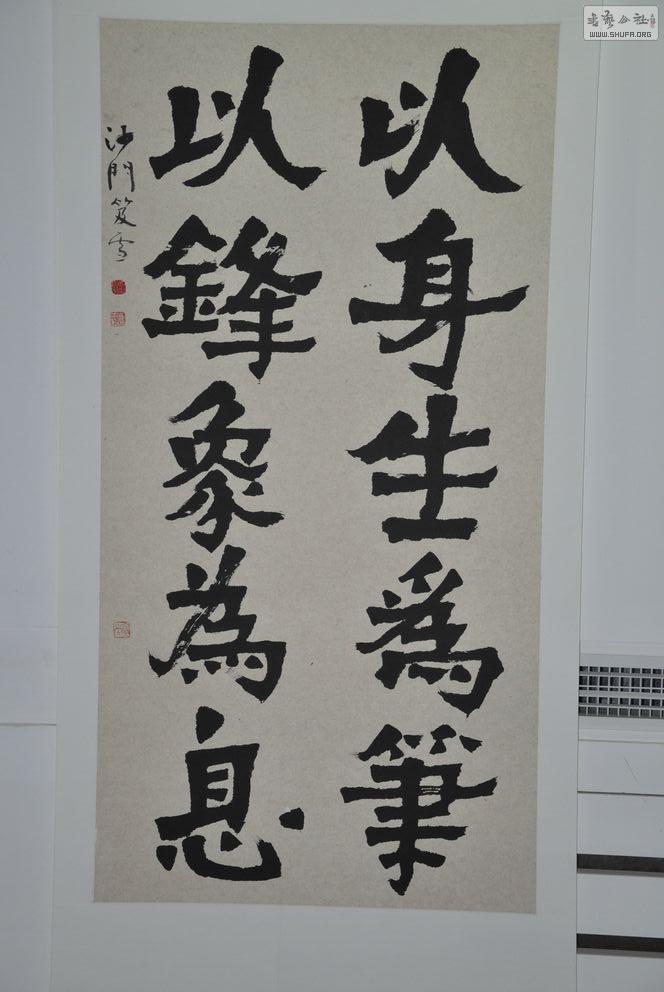 以身生爲筆
以鋒象為息
沙門笈雪
WWW.SHUFA.ORG